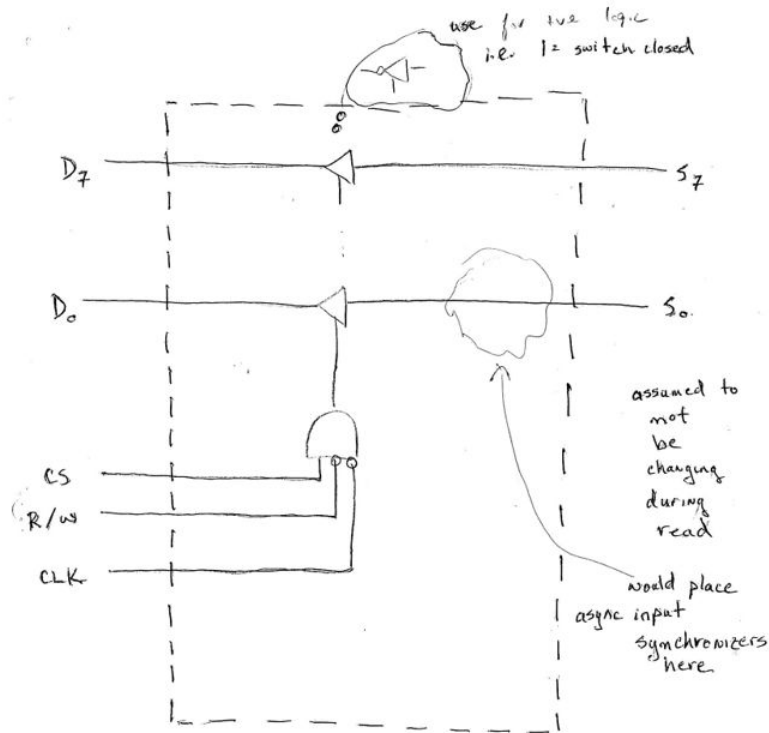 use for tve logic
i.e. 1= switch closed
D7
S7
D0
S0
assumed to
not
be
changing
during
read
CS
R/W
CLK
would place
async input
synchronizers
here